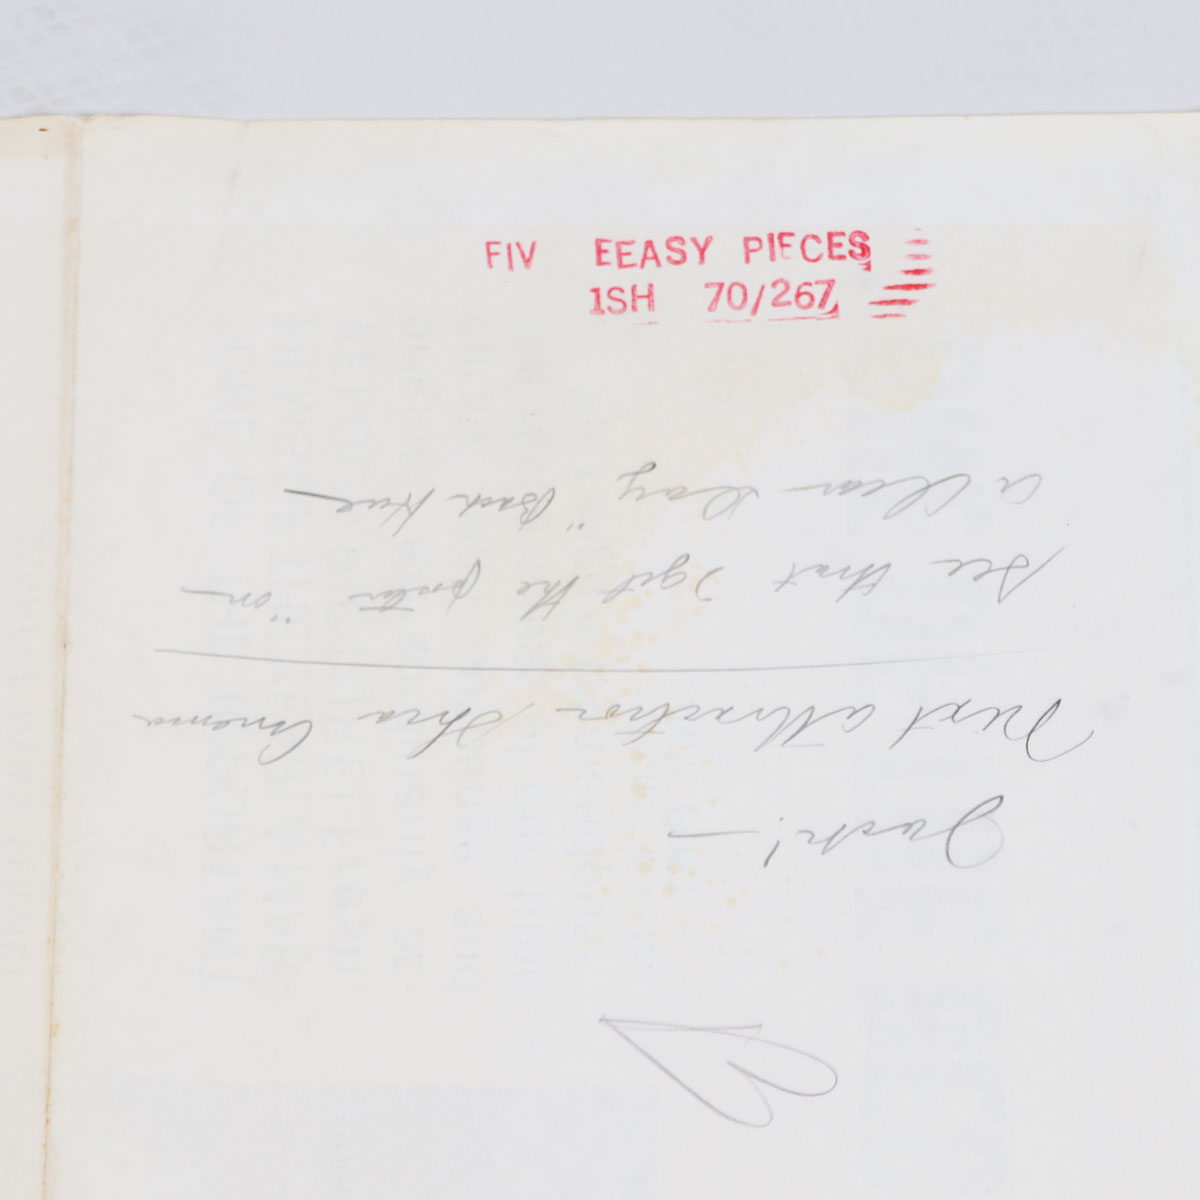 FIV EEASY PIECES
1SH 70/267
Next attraction this Cinema
See that I get the poster "on
a Clear Day" Back Here